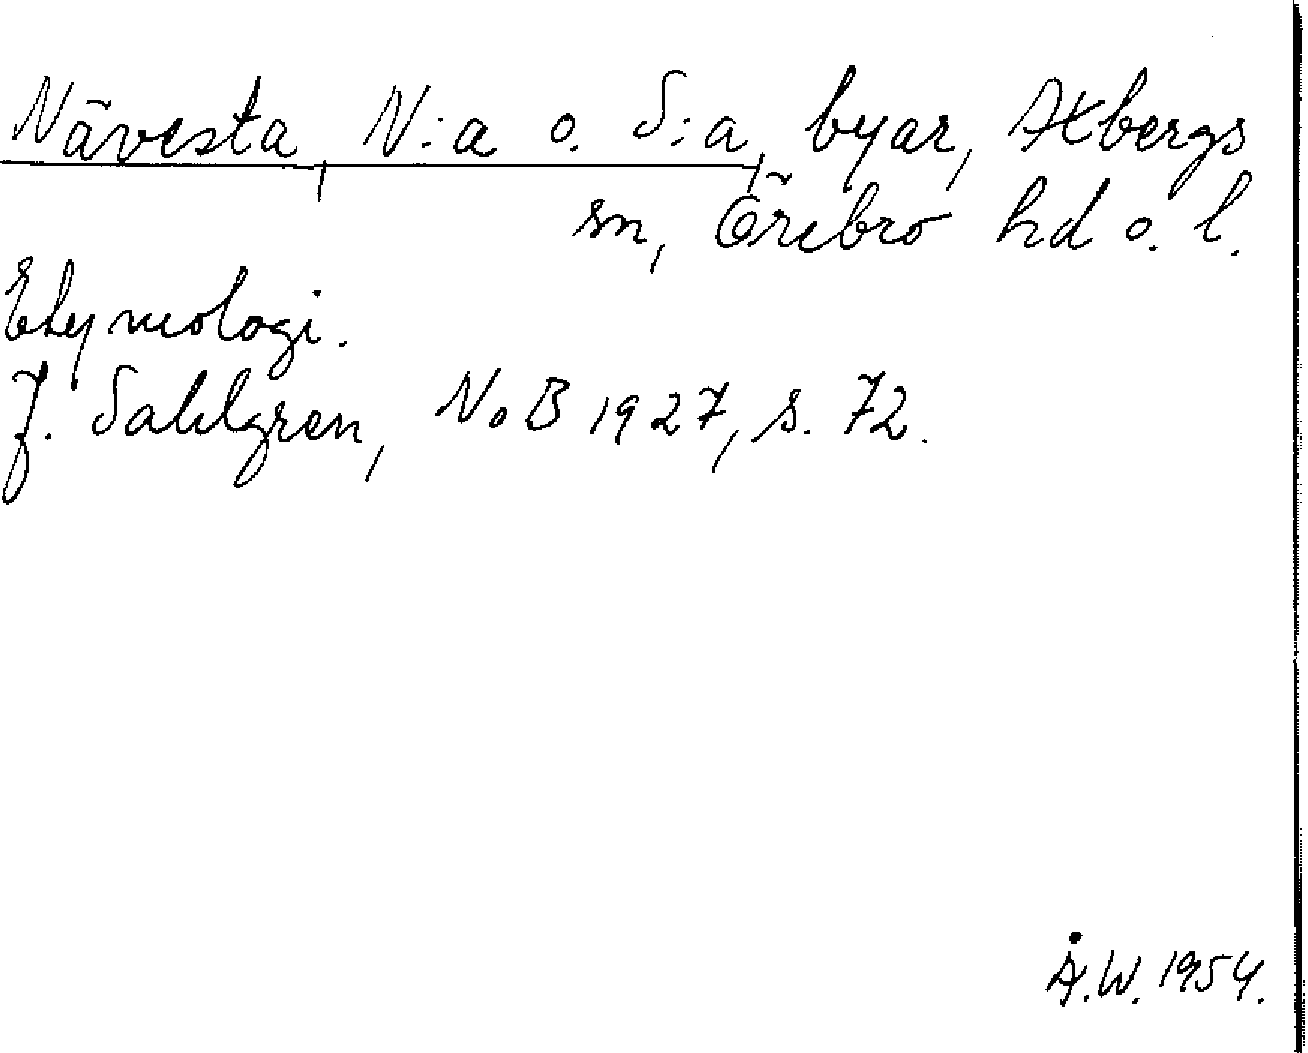 Nävesta, N:a o. S:a, byar, Axbergs
sn, Örebro hd o. l.
Etymologi.
J. Sahlgren, NoB 1927, s. 72.
Å.W. 1954.